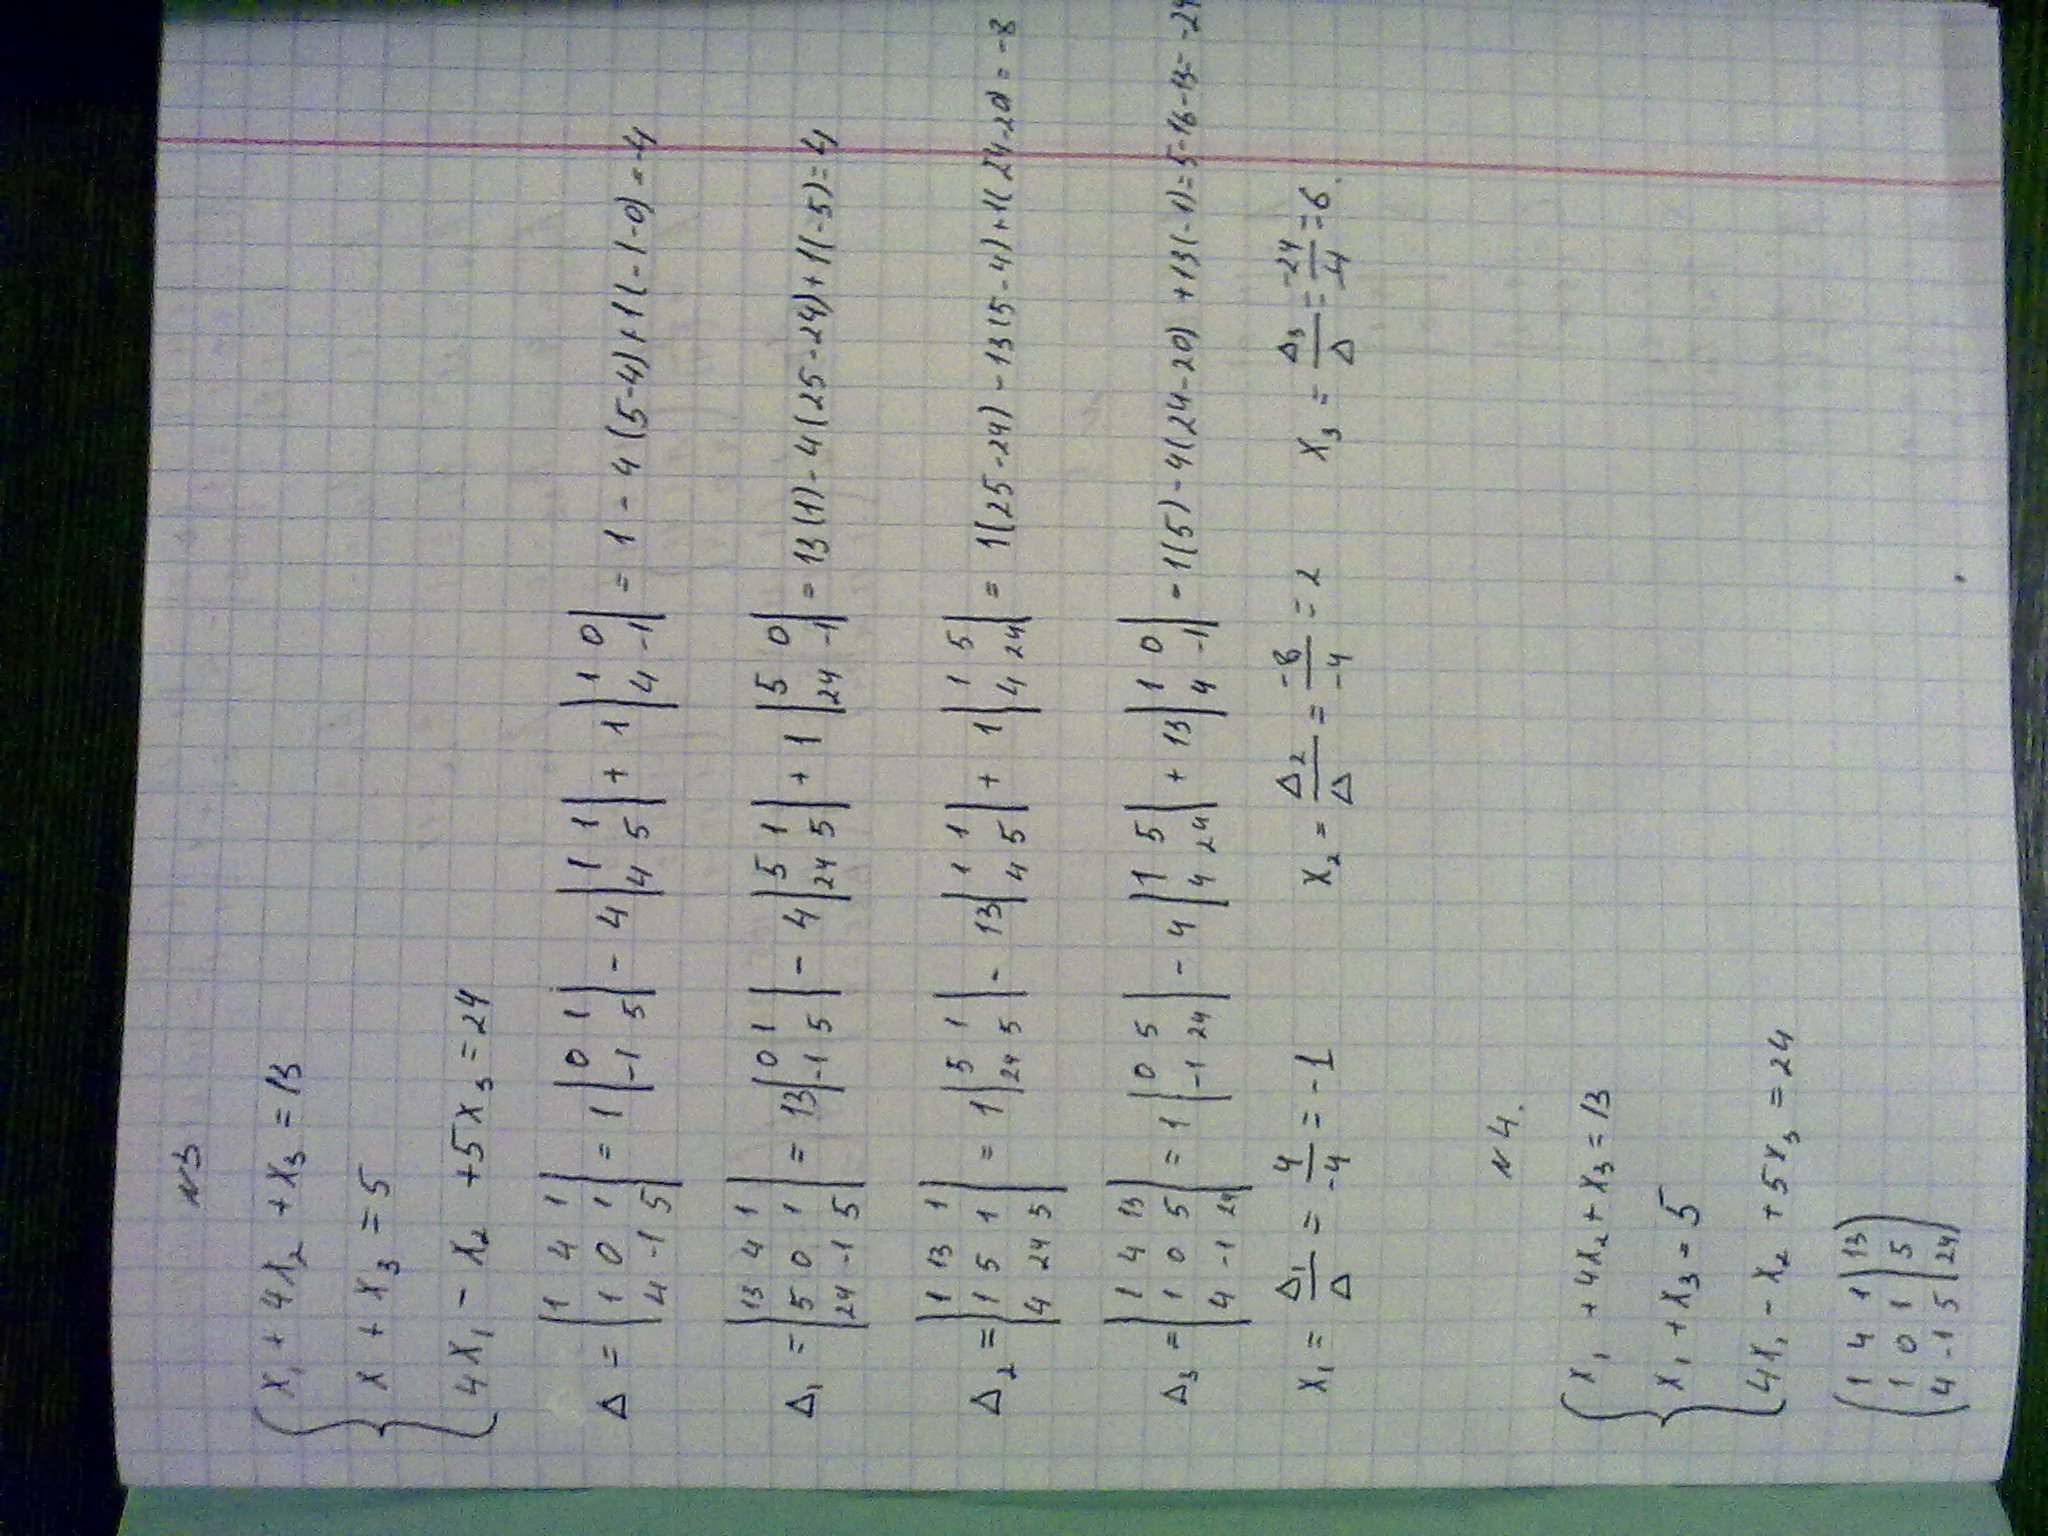 N3
x₁ + 4x₂ + x₃ = 13
x + x₃ = 5
4x₁ - x₂ + 5x₃ = 24
Δ = |1 4 1; 1 0 1; 4 -1 5| = 1 |0 1; -1 5| - 4 |1 1; 4 5| + 1 |1 0; 4 -1| = 1 - 4(5-4) + 1(-1-0) = -4
Δ₁ = |13 4 1; 5 0 1; 24 -1 5| = 13 |0 1; -1 5| - 4 |5 1; 24 5| + 1 |5 0; 24 -1| = 13(1) - 4(25-24) + 1(-5) = 4
Δ₂ = |1 13 1; 1 5 1; 4 24 5| = 1 |5 1; 24 5| - 13 |1 1; 4 5| + 1 |1 5; 4 24| = 1(25-24) - 13(5-4) + 1(24-20) = -8
Δ₃ = |1 4 13; 1 0 5; 4 -1 24| = 1 |0 5; -1 24| - 4 |1 5; 4 24| + 13 |1 0; 4 -1| - 1(5) - 4(24-20) + 13(-1) = 5-16-13 = -24
x₁ = Δ₁/Δ = 4/-4 = -1 x₂ = Δ₂/Δ = -8/-4 = 2 x₃ = Δ₃/Δ = -24/-4 = 6.
N 4.
x₁ + 4x₂ + x₃ = 13
x₁ + x₃ = 5
4x₁ - x₂ + 5x₃ = 24
(1 4 1 | 13
1 0 1 | 5
4 -1 5 | 24)